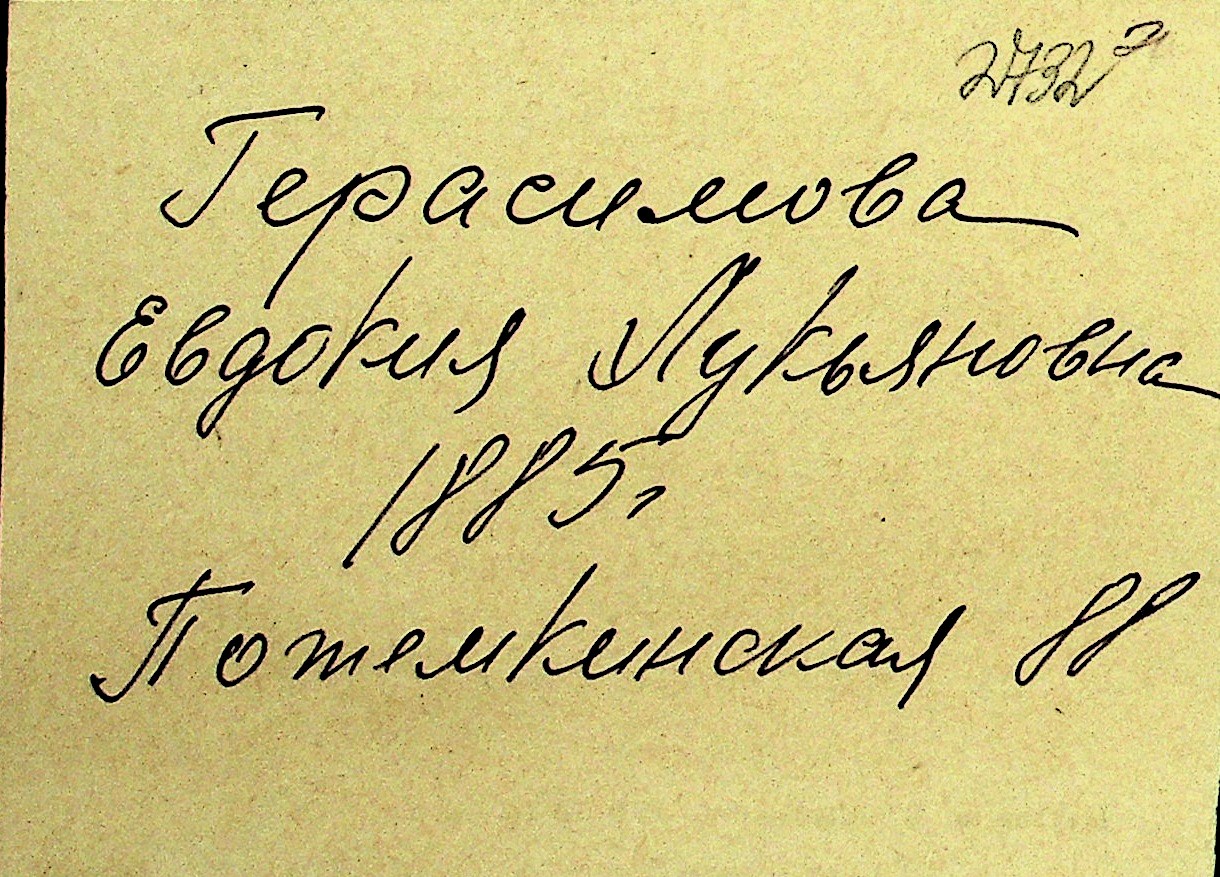 2732
Герасимова
Евдокия Лукьяновна
1885г
Потемкинская 88